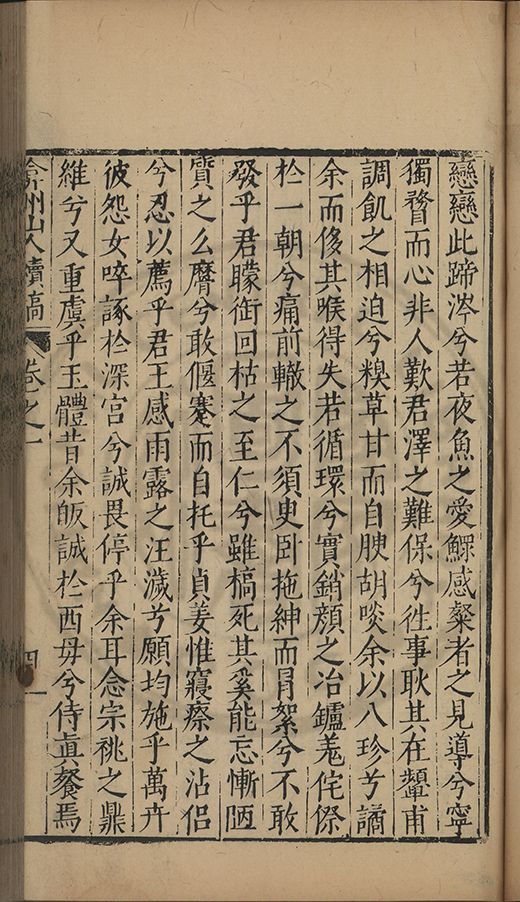 戀戀此蹄涔兮若夜魚之愛鰥感粲者之見導兮寧
獨瞀而心非人歎君澤之難保兮徃事耿其在顰甫
調飢之相迫兮糗草甘而自腴胡啖余以八珍兮讁
余而後其喉得失若循環兮實銷顏之冶鑪羗侘傺
於一朝兮痛前轍之不須史臥拖紳而冐絮兮不敢
發乎君矇銜回枯之至仁兮雖槁死其奚能忘慚陋
質之么麿兮敢偃蹇而自托乎貞姜惟寢瘵之沾侣
兮忍以薦乎君王感雨露之汪濊兮願均施乎萬卉
彼怨女啐諑於深宮兮誠畏停乎余耳念宗祧之鼎
維兮又重虞乎玉體昔余皈誠於西毋兮侍眞餐焉
弇州山人續稿 卷之一 四